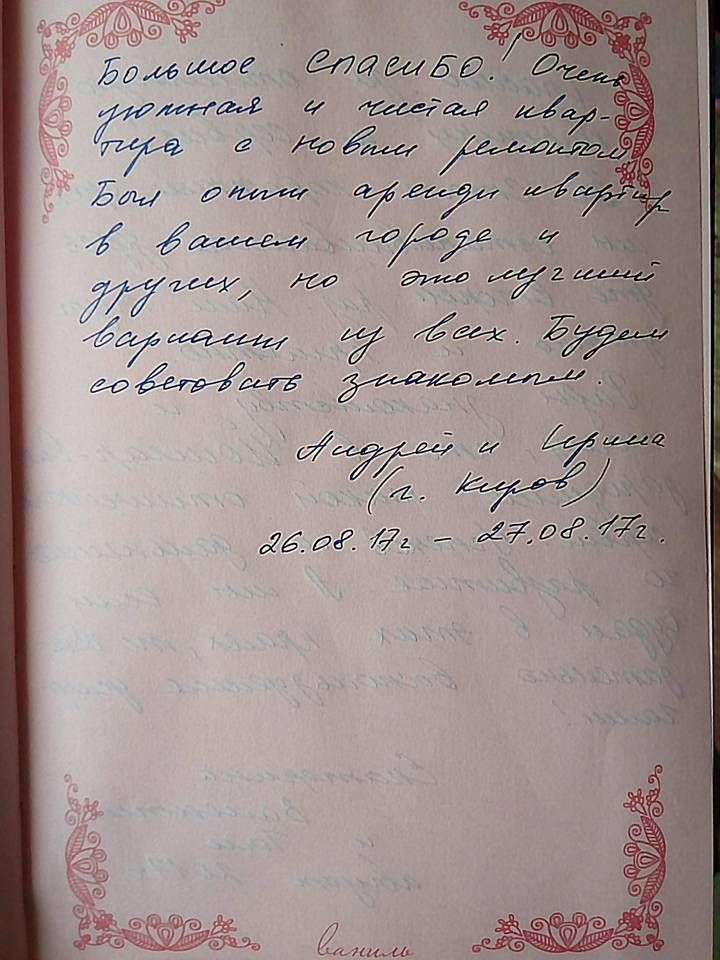 Большое СПАСИБО! Очень
уютная и чистая квар-
тира с новым ремонтом
Был опыт аренды квартир
в вашем городе и
других, но это лучший
вариант из всех. Будем
советовать знакомым.
Андрей и Ирина
(г. Киров)
26.08.17г – 27.08.17г.
ваниль